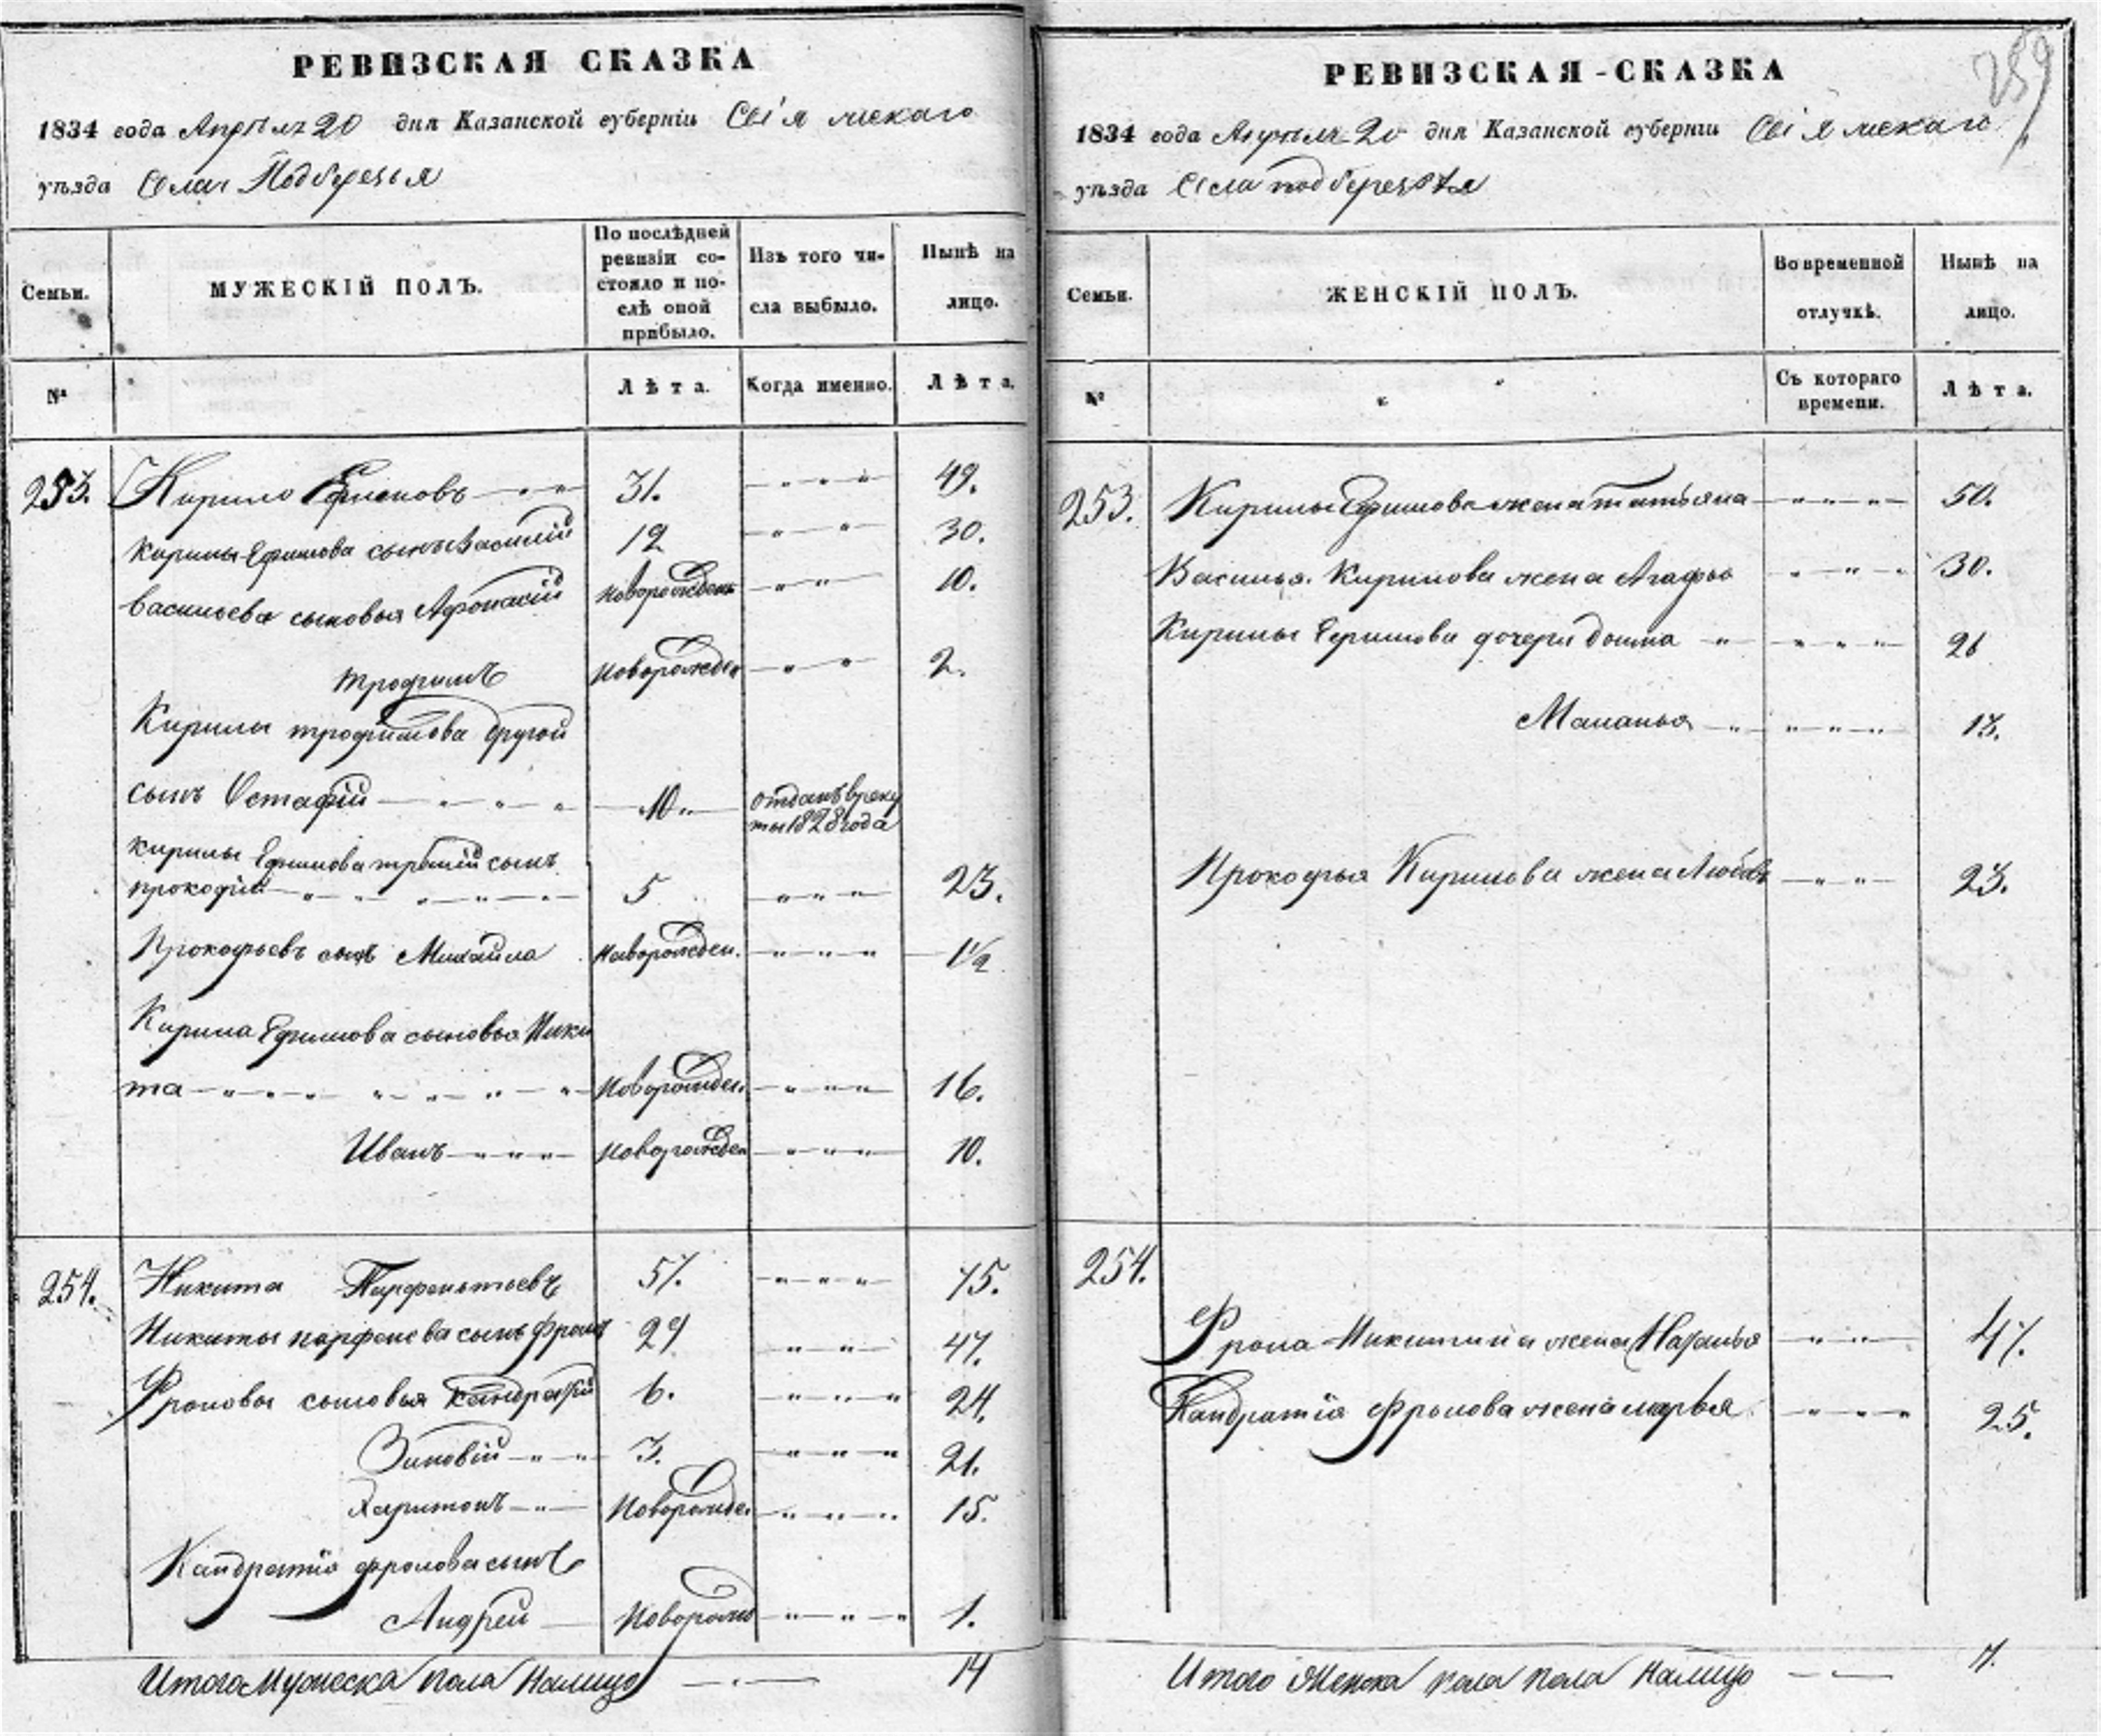 РЕВИЗСКАЯ СКАЗКА
1834 года Апрѣля 20 дня Казанской губерніи Свіяжскаго
уѣзда Села Подберезья
Семьи.
МУЖЕСКІЙ ПОЛЪ.
По послѣдней ревизіи состояло и послѣ оной прибыло.
Изъ того числа выбыло.
Нынѣ на лицо.
№
Лѣта.
Когда именно.
Лѣта.
253. Кирило Ефимовъ 31. 49.
Кирилы Ефимова сынъ Василій 12 30.
Васильева сыновья Афонасій новорожден 10.
трофимъ новорожден 2.
Кирилы трофимова другой
сынъ Остафій 10 отданъ в рекруты 1828 года
Кирилы Ефимова третій сынъ
прокофій 5 23.
Прокофьевъ сынъ Михайла новорожден. 1½
Кирила Ефимова сыновья Ники
та новорожден. 16.
Иванъ новорожден 10.
254. Никита Парфентьевъ 57. 75.
Никиты парфенева сынъ фролъ 29 47.
Фроловы сыновья кандратій 6. 24.
Зиновій 3. 21.
Харитонъ Новорожде. 15.
Кандратія фролова сынъ
Андрей Новорожд 1.
Итого Мужеска пола Налицо 14
РЕВИЗСКАЯ-СКАЗКА
259
1834 года Апрѣля 20 дня Казанской губерніи Свіяжскаго
уѣзда Села подберезья
Семьи.
ЖЕНСКІЙ ПОЛЪ.
Во временной отлучкѣ.
Нынѣ на лицо.
№
Съ котораго времени.
Лѣта.
253. Кирилы Ефимова жена татьяна 50.
Василья Кирилова жена Агафья 30.
Кирилы Ефимова дочери домна 26
Маланья 13.
Прокофья Кирилова жена Любовь 23.
254.
Фрола Микитина жена Наталья 47.
Кандратія Фролова жена марья 25.
Итого Женска пола Налицо 7.